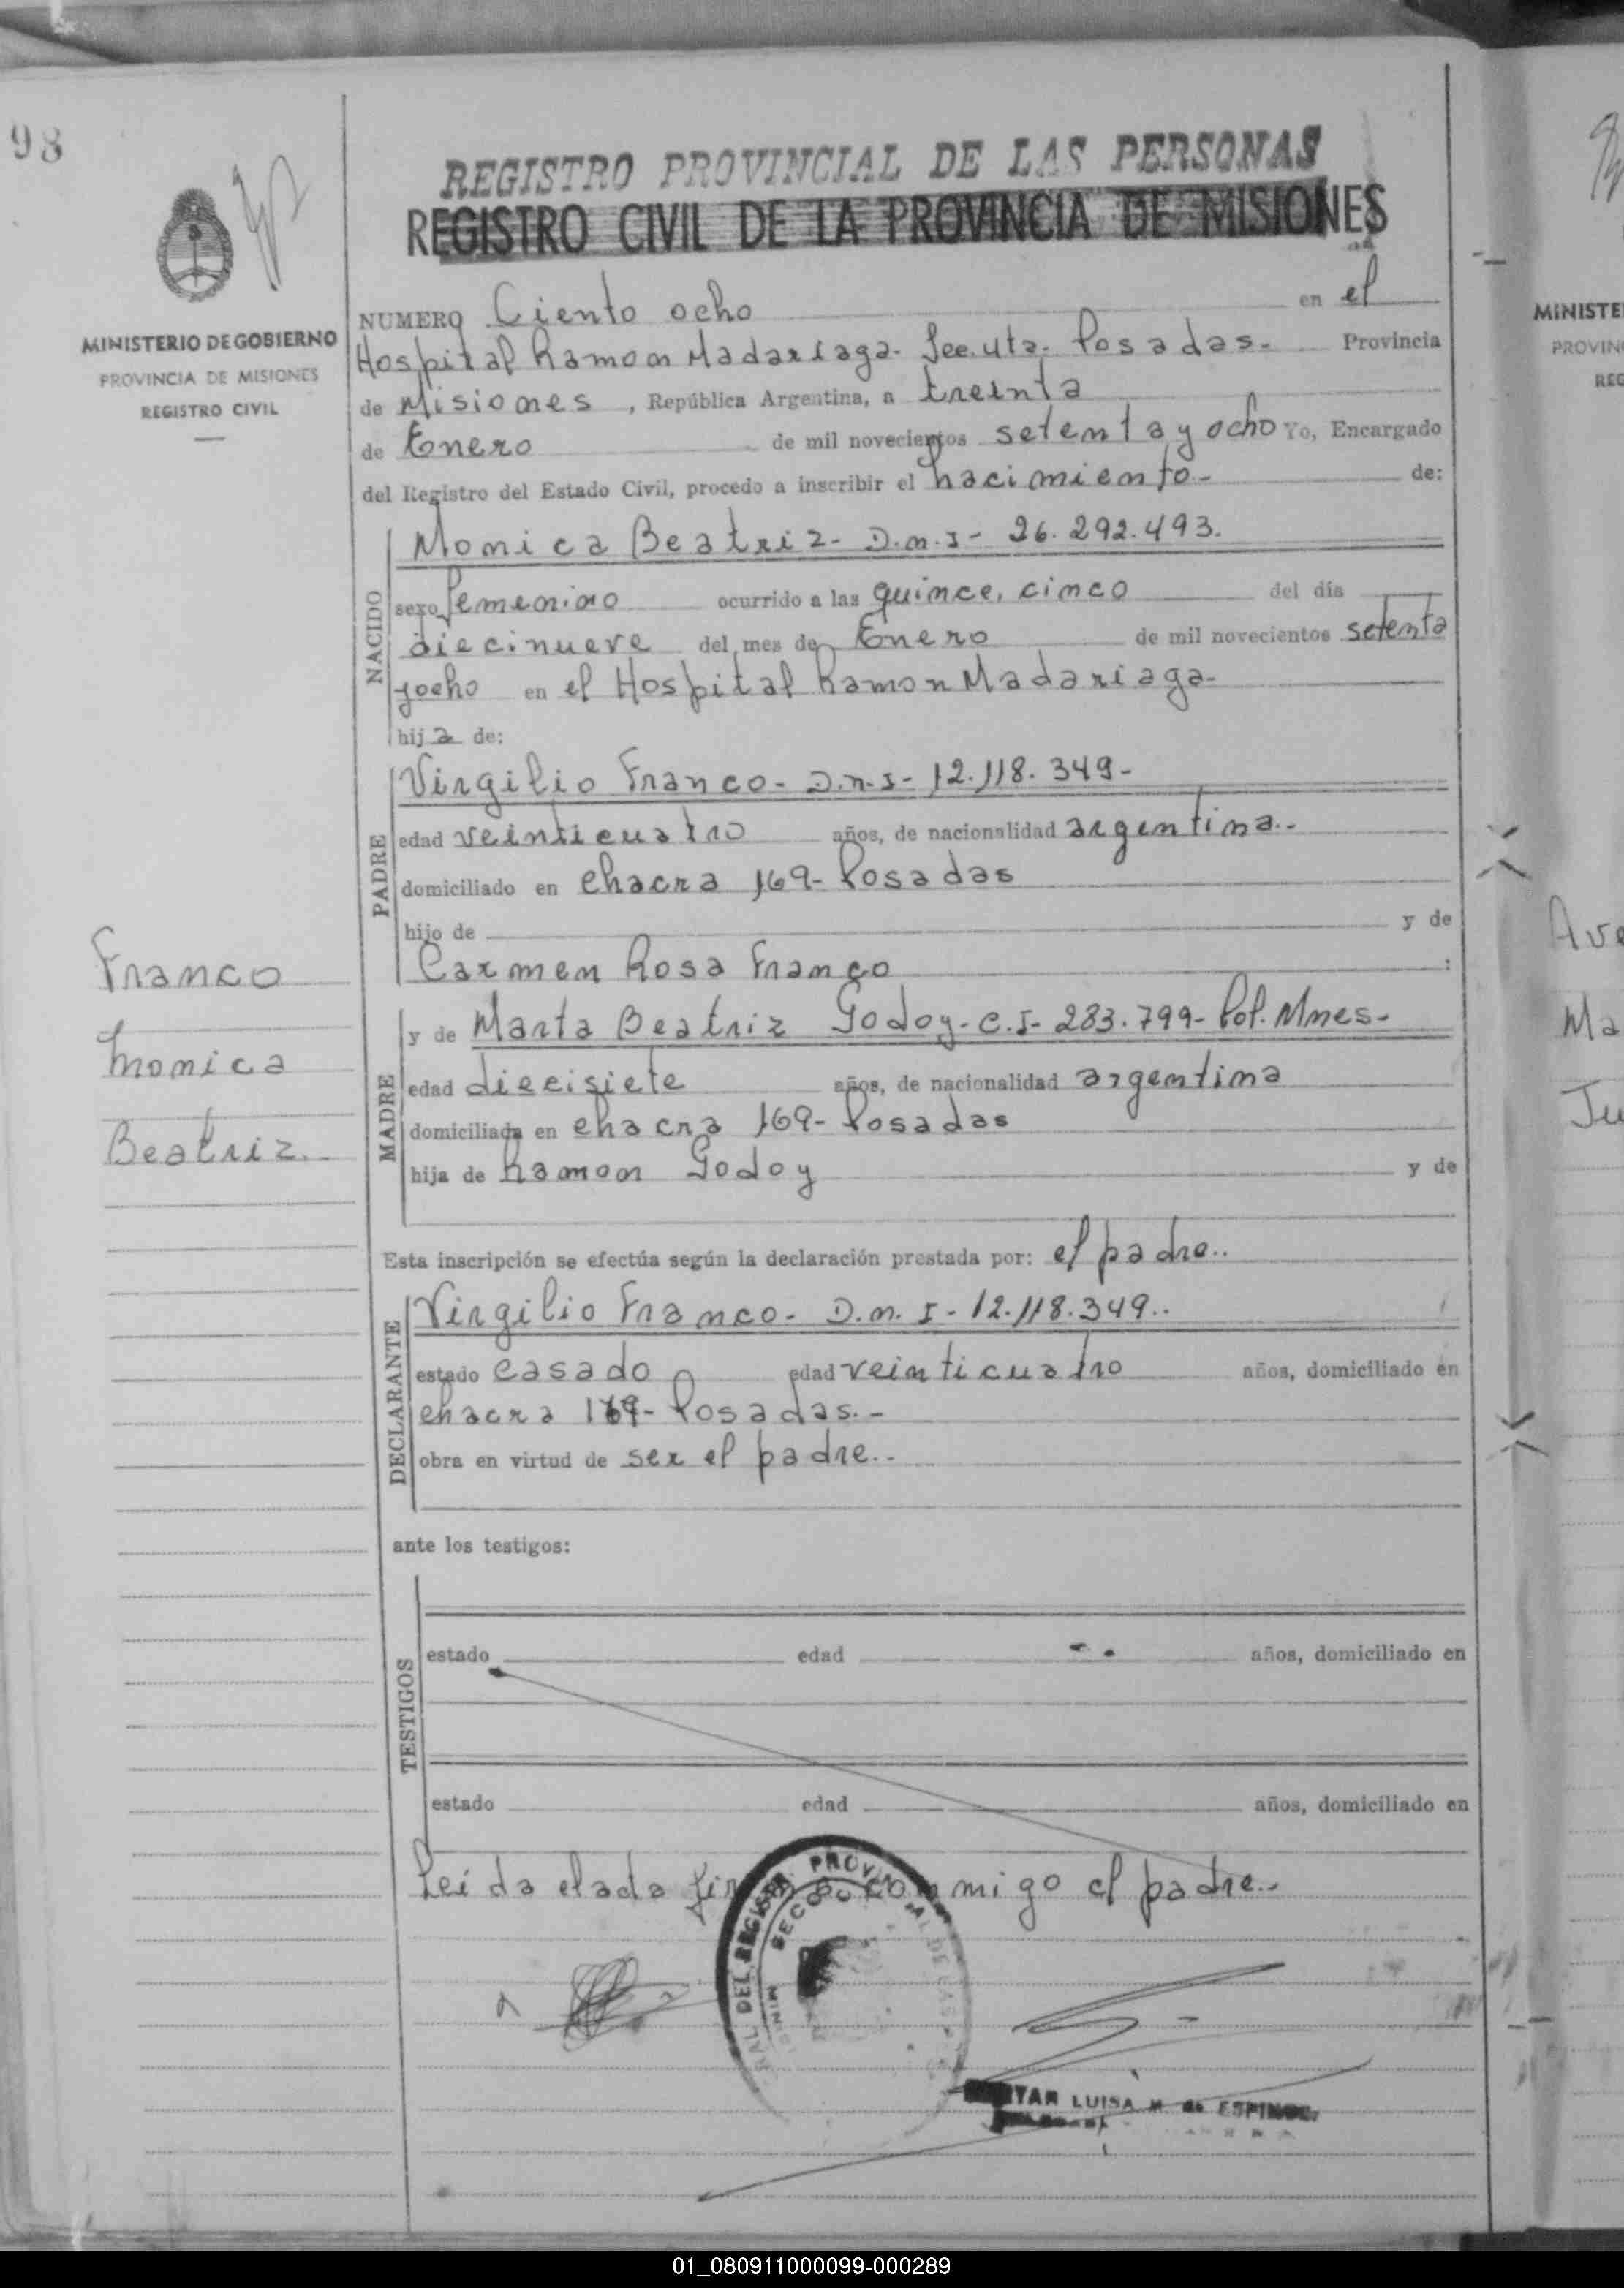 98
REGISTRO PROVINCIAL DE LAS PERSONAS
REGISTRO CIVIL DE LA PROVINCIA DE MISIONES
MINISTERIO DE GOBIERNO
PROVINCIA DE MISIONES
REGISTRO CIVIL
NUMERO Ciento ocho en el
Hospital Ramon Madariaga- Posadas- Provincia
de Misiones, República Argentina, a treinta
de Enero de mil novecientos setenta y ocho Yo, Encargado
del Registro del Estado Civil, procedo a inscribir el nacimiento- de:
NACIDO
Monica Beatriz- D.n.I- 26.292.493.
sexo femenino ocurrido a las quince, cinco del día
diecinueve del mes de Enero de mil novecientos setenta
yocho en el Hospital Ramon Madariaga-
hija de:
PADRE
Virgilio Franco- D.n.I- 12.118.349-
edad veinticuatro años, de nacionalidad argentina.-
domiciliado en chacra 169- Posadas
hijo de y de
Carmen Rosa Franco :
Franco
Monica
Beatriz.-
MADRE
y de Marta Beatriz Godoy- C.I- 283.799- Pol. Mnes-
edad diecisiete años, de nacionalidad argentina
domiciliada en chacra 169- Posadas
hija de Ramon Godoy y de
Esta inscripción se efectúa según la declaración prestada por: el padre..
DECLARANTE
Virgilio Franco- D.n.I- 12.118.349..
estado casado edad veinticuatro años, domiciliado en
chacra 169- Posadas.-
obra en virtud de ser el padre..
ante los testigos:
TESTIGOS
estado edad años, domiciliado en
estado edad años, domiciliado en
Leida elada firma conmigo el padre..
DEL REGISTRO PROVINCIAL DE LAS
LUISA M. de ESPINOE
MINISTE
PROVIN
REG
Ave
Ma
Ju
01_080911000099-000289